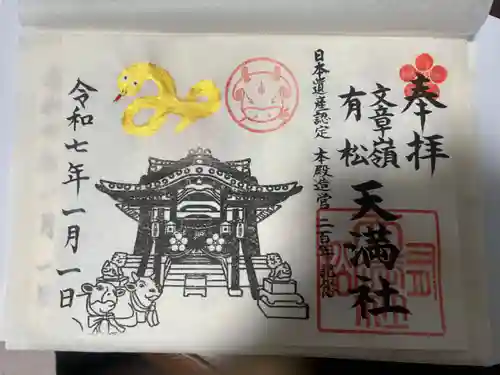 奉拝
文章嶺
有松
天満社
日本遺産認定 本殿造営 二百年
令和七年一月一日